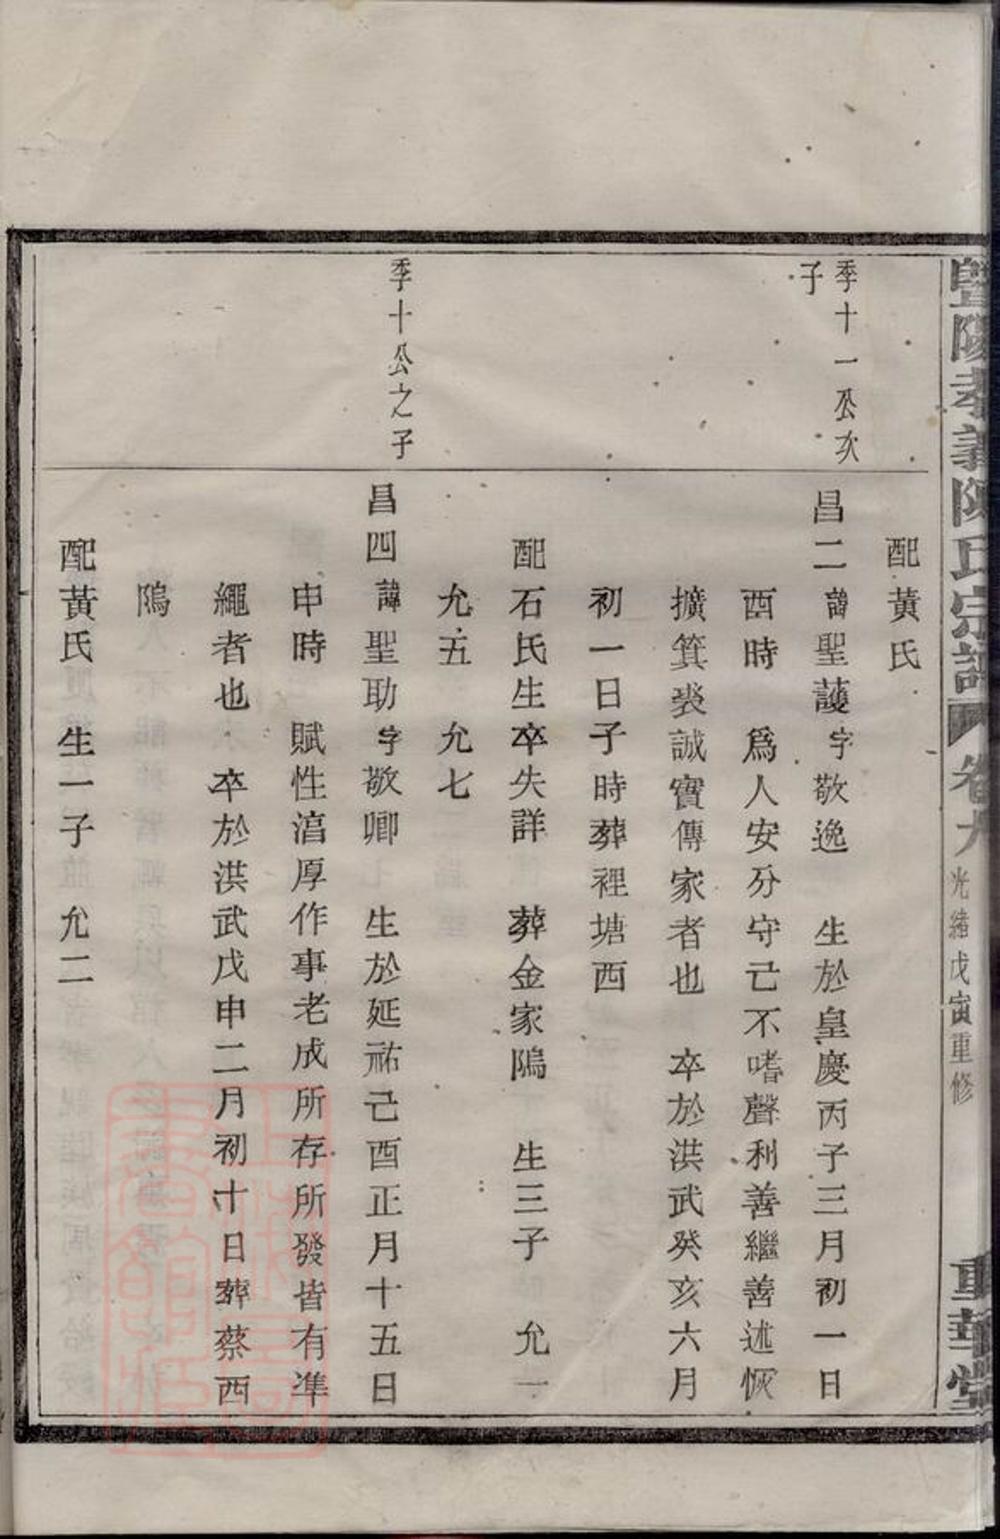 暨陽孝義陳氏宗譜 卷九 光緒戊寅重修 重華堂
配黃氏
季十一公次
子
昌二 諱聖護字敬逸 生於皇慶丙子三月初一日
酉時 爲人安分守己不嗜聲利善繼善述恢
擴箕裘誠實傳家者也 卒於洪武癸亥六月
初一日子時葬裡塘西
配石氏生卒失詳 葬金家隖 生三子 允一
允五 允七
季十公之子
昌四 諱聖助字敬卿 生於延祐己酉正月十五日
申時 賦性湻厚作事老成所存所發皆有準
繩者也 卒於洪武戊申二月初十日葬蔡西
隖
配黃氏 生一子 允二